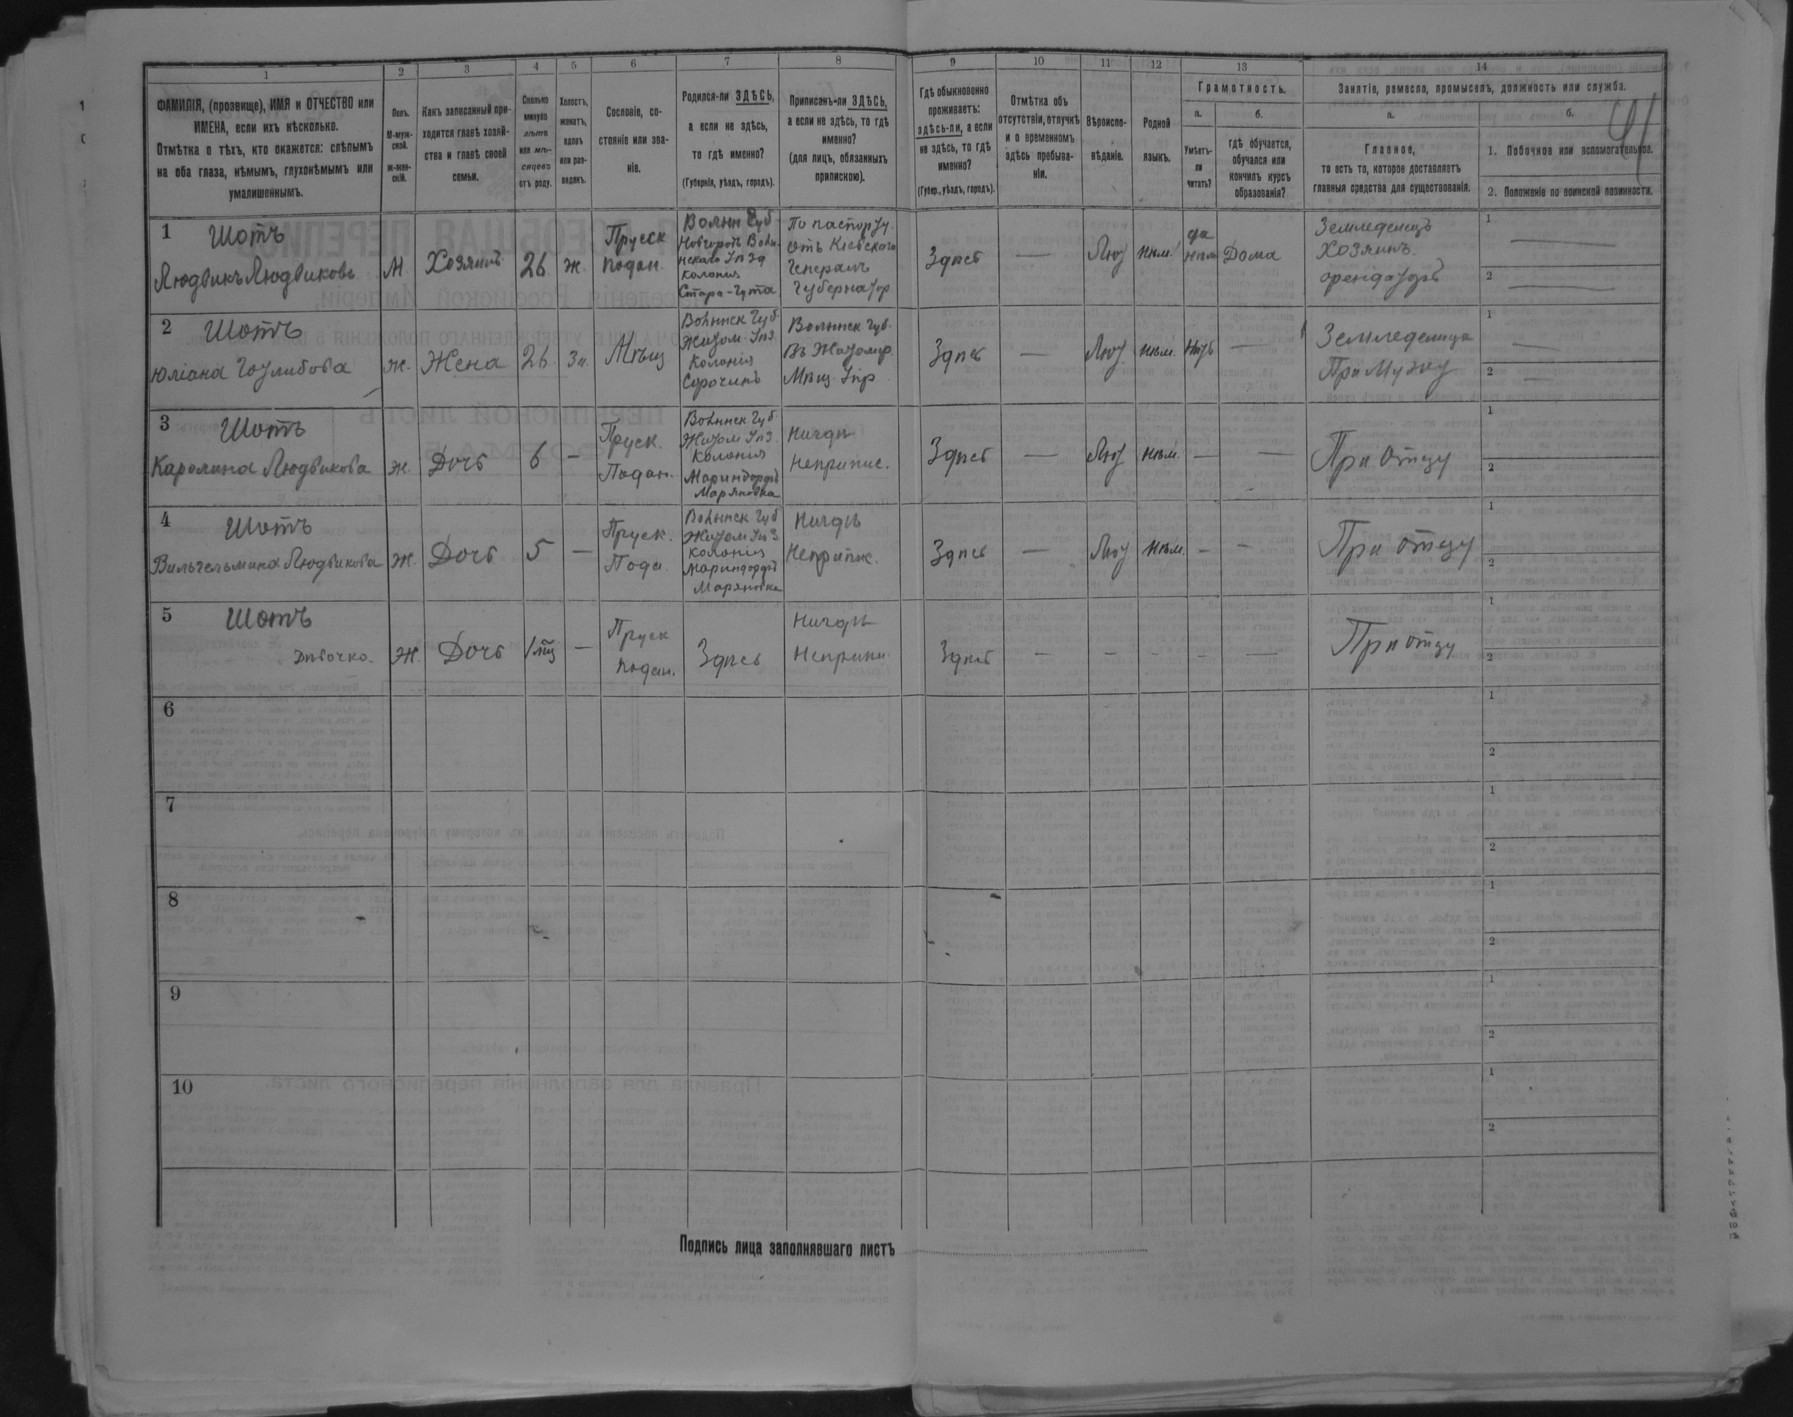 1
2
3
4
5
6
7
8
9
10
11
12
13
14
ФАМИЛІЯ, (прозвище), ИМЯ и ОТЧЕСТВО или
ИМЕНА, если ихъ нѣсколько.
Отмѣтка о тѣхъ, кто окажется: слѣпымъ
на оба глаза, нѣмымъ, глухонѣмымъ или
умалишеннымъ.
Полъ.
М-муж-
ской.
Ж-жен-
скій.
Какъ записанный при-
ходится главѣ хозяй-
ства и главѣ своей
семьи.
Сколько
минуло
лѣтъ
или мѣ-
сяцевъ
отъ роду.
Холостъ,
женатъ,
вдовъ
или раз-
веденъ.
Сословіе, со-
стояніе или зва-
ніе.
Родился-ли ЗДѢСЬ,
а если не здѣсь,
то гдѣ именно?
(Губернія, уѣздъ, городъ).
Приписанъ-ли ЗДѢСЬ,
а если не здѣсь, то гдѣ
именно?
(для лицъ, обязанныхъ
припискою).
Гдѣ обыкновенно
проживаетъ:
здѣсь-ли, а если
не здѣсь, то гдѣ
именно?
(Губер., уѣздъ, городъ).
Отмѣтка объ
отсутствіи, отлучкѣ
и о временномъ
здѣсь пребыва-
ніи.
Вѣроиспо-
вѣданіе.
Родной
языкъ.
Грамотность.
а.
Умѣетъ-
ли
читать?
б.
гдѣ обучается,
обучался или
кончилъ курсъ
образованія?
Занятіе, ремесло, промыселъ, должность или служба.
а.
Главное,
то есть то, которое доставляетъ
главныя средства для существованія.
б.
1. Побочное или вспомогательное.
2. Положеніе по воинской повинности.
1 Шотъ
Людвикъ Людвиковъ
М
Хозяинъ
26
ж.
Прусск
подан.
Волын Губ
Новгородъ Волы-
нскаго Уѣзд
колонія
Стара-Гута
По паспорту
отъ Кіевскаго
Генералъ
Губернатор
Здѣсь
—
Лют
нѣм.
да
нѣм
Дома
Земледелецъ
Хозяинъ
орендаторъ
1 —
2 —
2 Шотъ
Юліана Готлибова
ж.
Жена
26
Зм.
Мѣщ
Волынск Губ
Житом. Уѣз.
Колонія
Сорочинъ
Волынск Губ.
Въ Житомир.
Мѣщ. Упр
Здѣсь
—
Лют
нѣм.
нѣтъ
—
Земледелица
При Мужу
1 —
2 —
3 Шотъ
Каролина Людвикова
ж.
Дочь
6
—
Пруск.
Подан.
Волынск Губ
Житом Уѣз.
Колонія
Мариндорфъ
Маряновка
Нигдѣ
Неприпис.
Здѣсь
—
Лют
нѣм.
—
—
При отцу
1
2
4 Шотъ
Вильгельмина Людвикова
Ж.
Дочь
5
—
Пруск.
Подн.
Волынск Губ
Житом Уѣз
колонія
Мариндорфъ
Маряновка
Нигдѣ
Неприпис.
Здѣсь
—
Лют
нѣм.
—
—
При отцу
1
2
5 Шотъ
Дѣвочка.
Ж.
Дочь
1 мѣс
—
Пруск
подан.
Здѣсь
Нигдѣ
Неприпи
Здѣсь
—
—
—
—
—
При отцу
1
2
6
1
2
7
1
2
8
1
2
9
1
2
10
1
2
Подпись лица заполнявшаго листъ